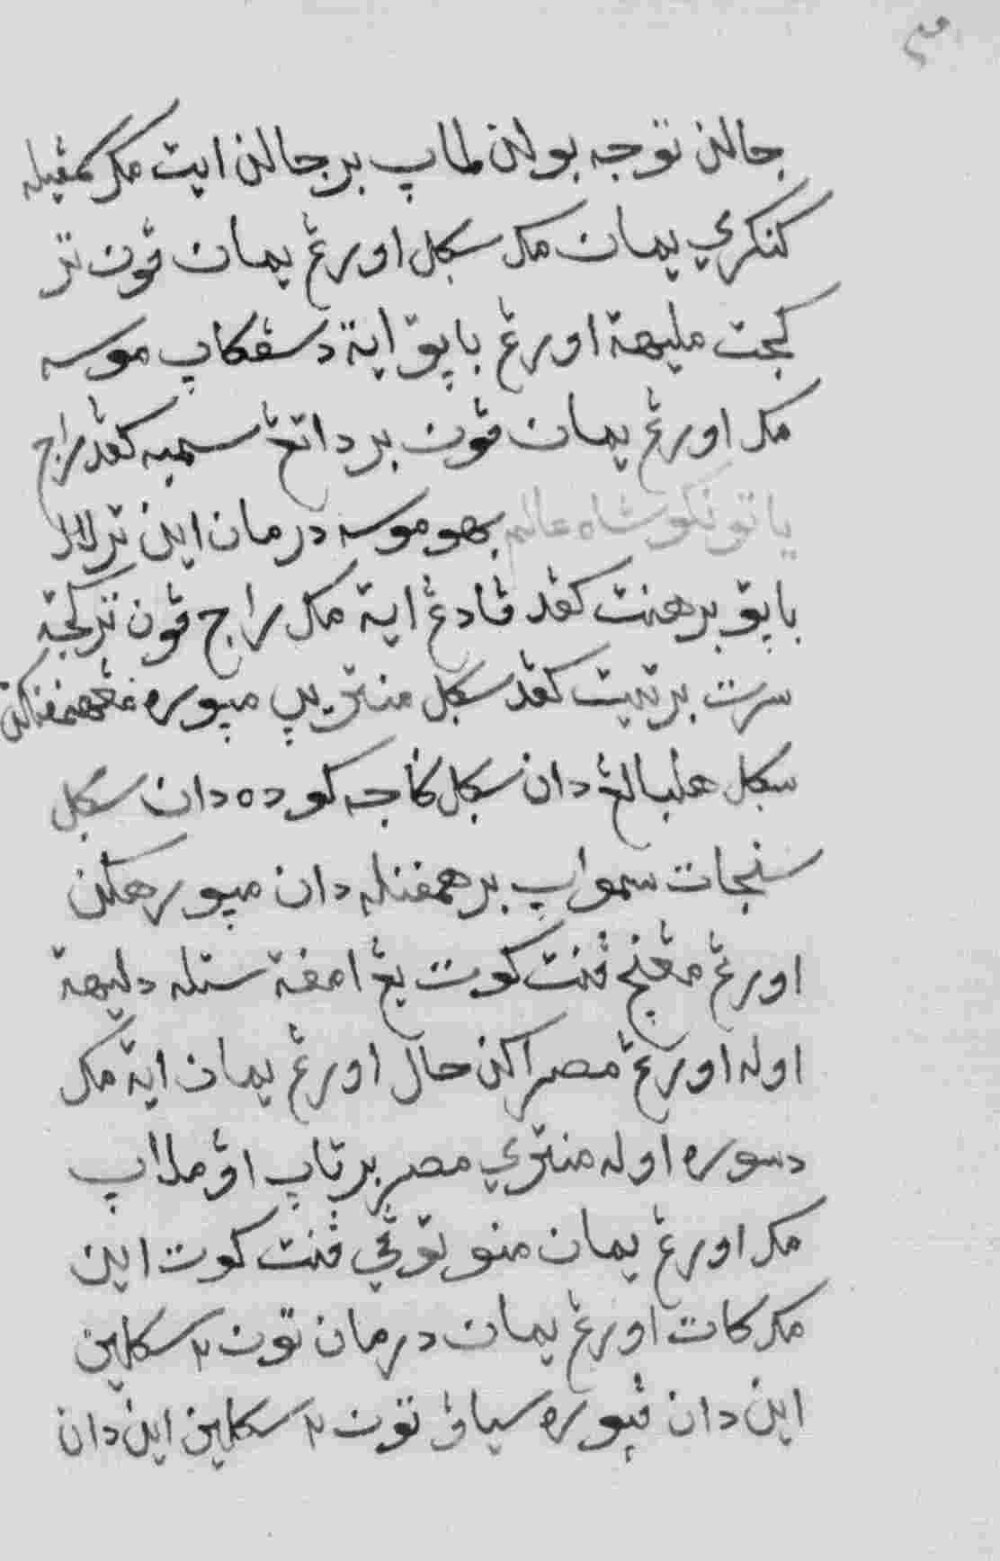 جالن توجه بولن لماڽ برجالن ايت مک کمڤيله
کنکري يمان مک سکل اورڠ يمان ڤون تر
کجت مليهة اورڠ باڽق اية دسڠکاڽ موسه
مک اورڠ يمان ڤون برداتڠ سمبه کڤد راج
ياتونکو شاه عالم بهو موسه درمان اين ترلالا
باڽق برهنت کڤد ڤادڠ اية مک راج ڤون ترکجة
سرت برتيته کڤد سکل منتريڽ مڽوره مڠهمڤنکن
سکل هلبالڠ دان سکل کاجه کوده دان سکل
سنجات سمواڽ برهمڤنله دان مڽورهکن
اورڠ مڠنچڠ ڤنت کوت يڠ امڤة ستله دليهة
اوله اورڠ مصر اکن حال اورڠ يمان اية مک
دسوره اوله منتري مصر برتاڽ اڤ ملاڽ
مک اورڠ يمان منوتوڤي ڤنت کوت اين
مک کات اورڠ يمان درمان تون٢ سکلين
اين دان ڤڽوره سياڤ تون٢ سکلين اين دان